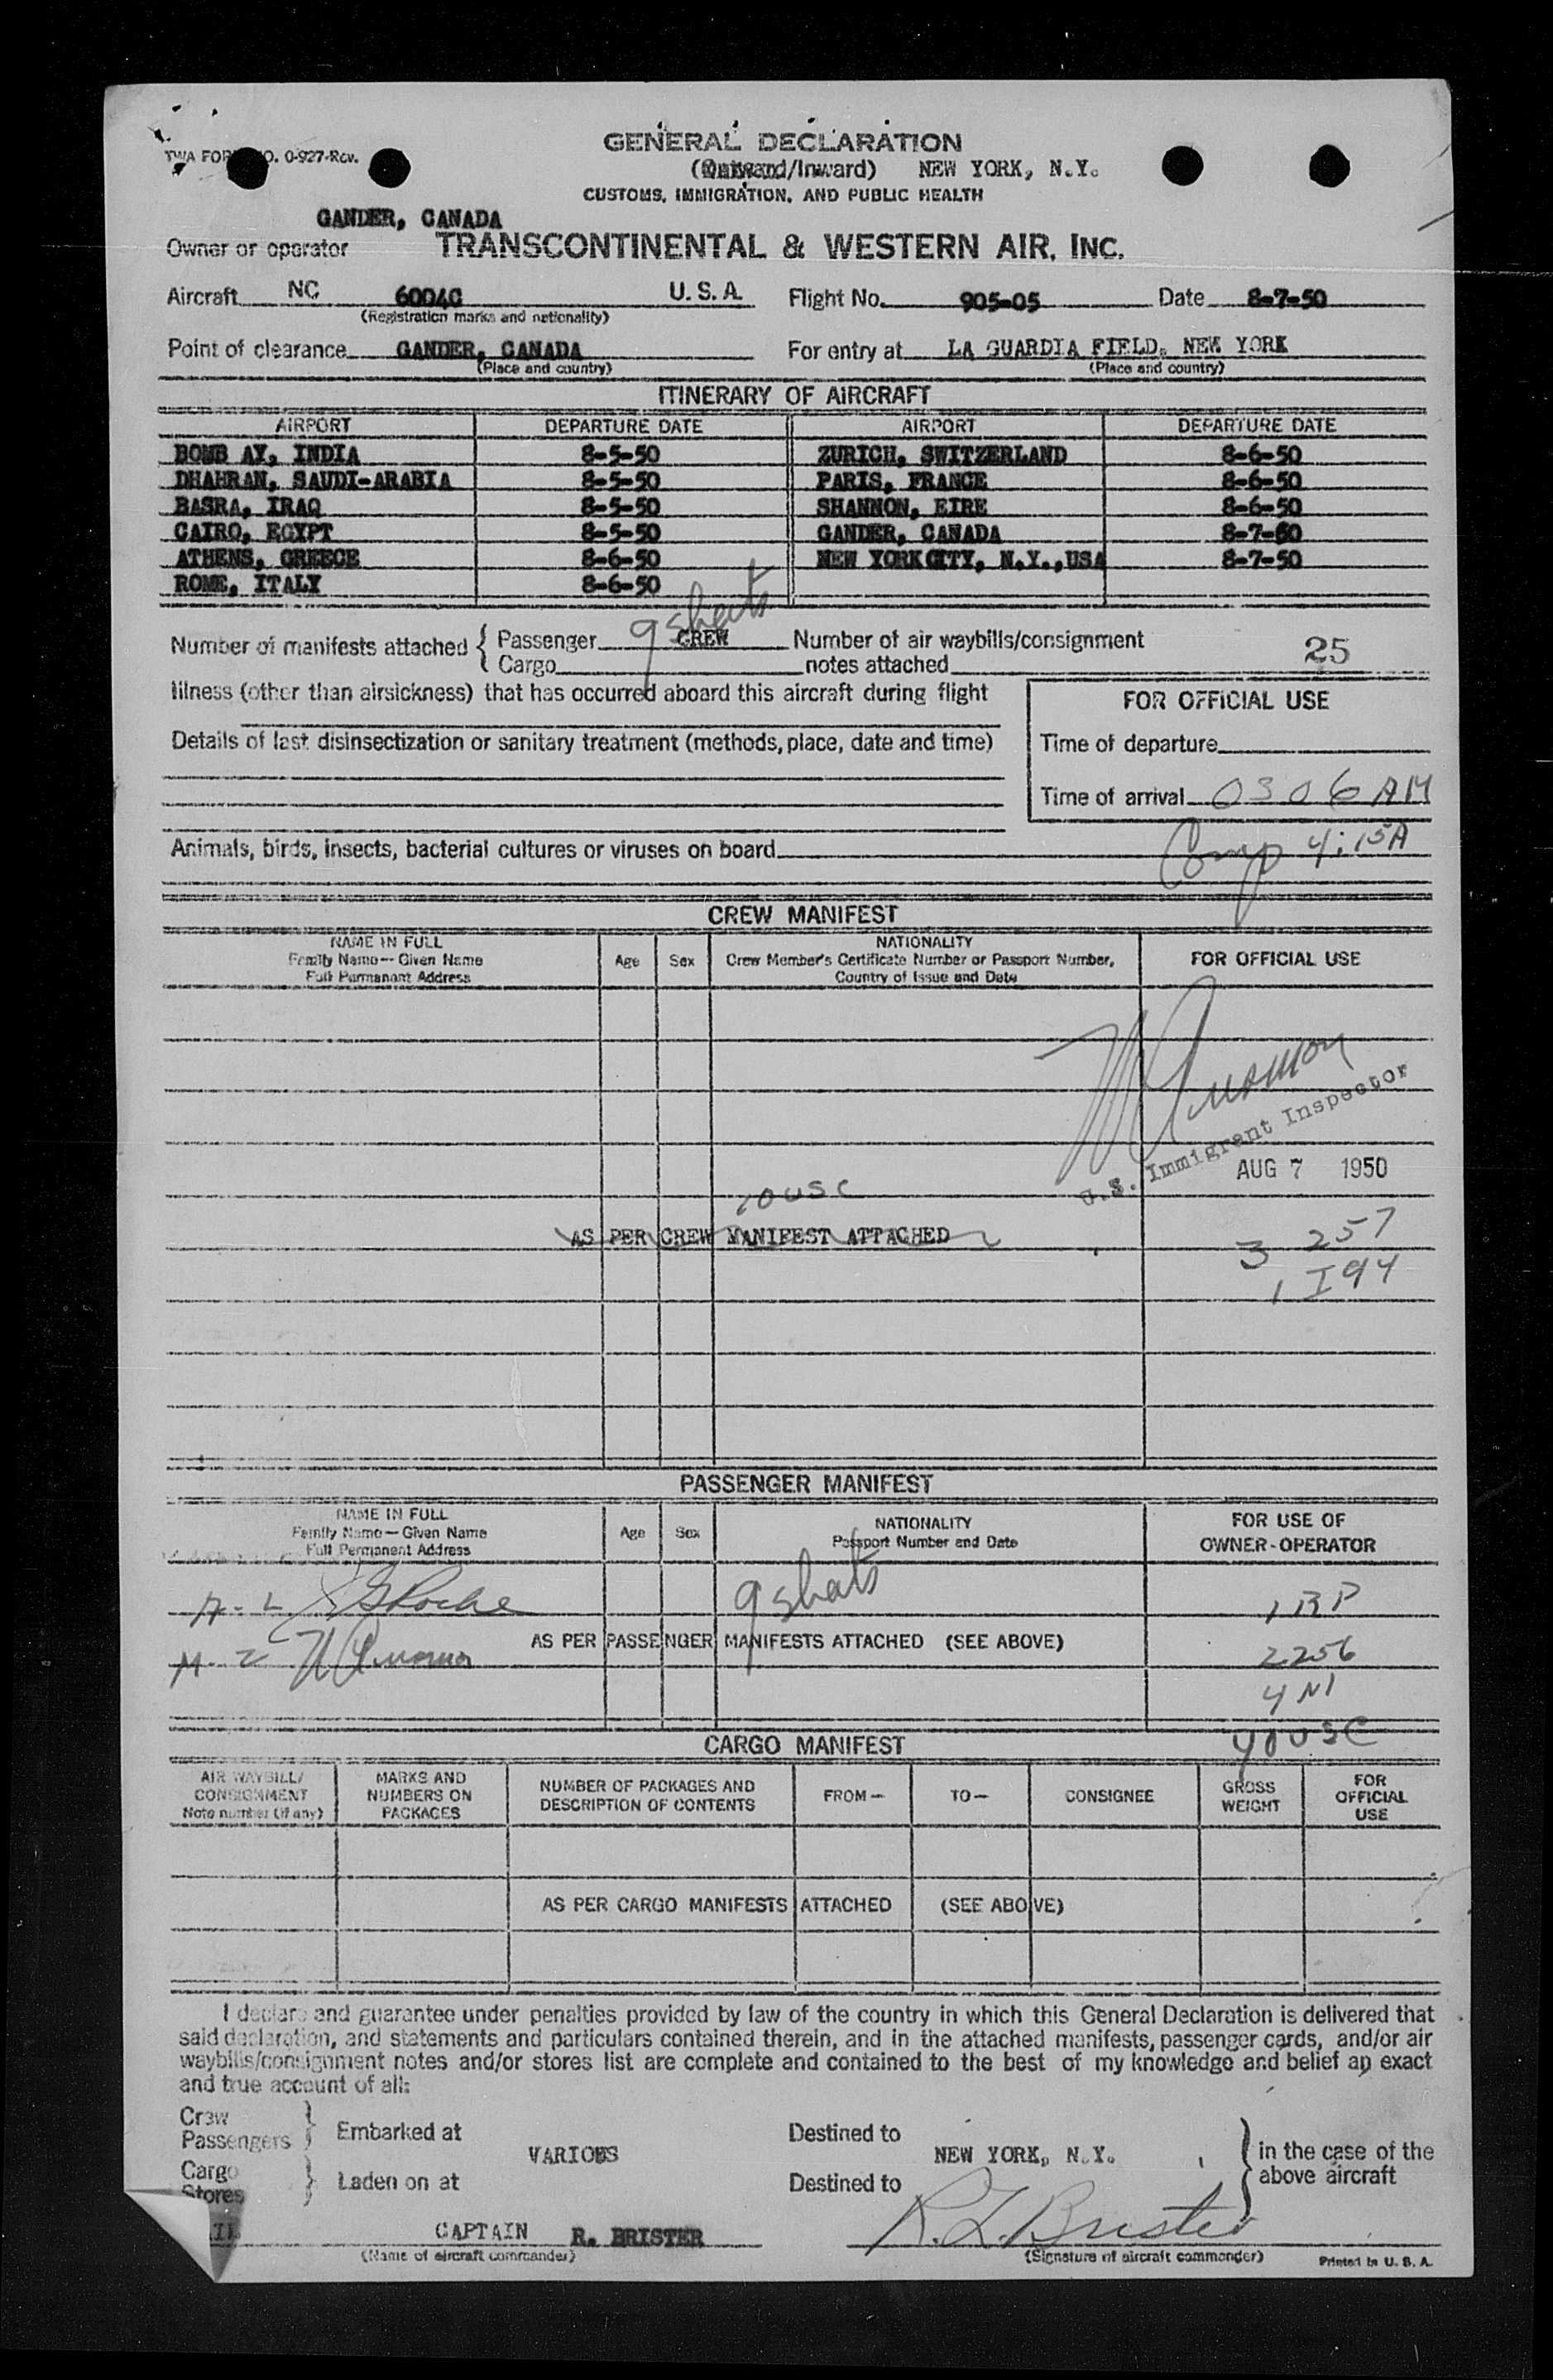 TWA FORM NO. 0-927-Rev.
GENERAL DECLARATION
(Outward/Inward) NEW YORK, N.Y.
CUSTOMS, IMMIGRATION, AND PUBLIC HEALTH
GANDER, CANADA
Owner or operator TRANSCONTINENTAL & WESTERN AIR, INC.
Aircraft NC 6004C U.S.A. Flight No. 905-05 Date 8-7-50
(Registration marks and nationality)
Point of clearance GANDER, CANADA For entry at LA GUARDIA FIELD, NEW YORK
(Place and country) (Place and country)
ITINERARY OF AIRCRAFT
AIRPORT DEPARTURE DATE AIRPORT DEPARTURE DATE
BOMB AY, INDIA 8-5-50 ZURICH, SWITZERLAND 8-6-50
DHAHRAN, SAUDI-ARABIA 8-5-50 PARIS, FRANCE 8-6-50
BASRA, IRAQ 8-5-50 SHANNON, EIRE 8-6-50
CAIRO, EGYPT 8-5-50 GANDER, CANADA 8-7-50
ATHENS, GREECE 8-6-50 NEW YORK CITY, N.Y.,USA 8-7-50
ROME, ITALY 8-6-50
Number of manifests attached { Passenger 9 sheets CREW Number of air waybills/consignment 25
Cargo notes attached
Illness (other than airsickness) that has occurred aboard this aircraft during flight
FOR OFFICIAL USE
Details of last disinsectization or sanitary treatment (methods, place, date and time)
Time of departure
Time of arrival 0306 AM
Animals, birds, insects, bacterial cultures or viruses on board Comp 4:15A
CREW MANIFEST
NAME IN FULL
Family Name—Given Name
Full Permanent Address
Age Sex
NATIONALITY
Crew Member's Certificate Number or Passport Number,
Country of Issue and Date
FOR OFFICIAL USE
U.S. Immigrant Inspector
AUG 7 1950
10 USC
AS PER CREW MANIFEST ATTACHED
3 257
1 I94
PASSENGER MANIFEST
NAME IN FULL
Family Name—Given Name
Full Permanent Address
Age Sex
NATIONALITY
Passport Number and Date
FOR USE OF
OWNER-OPERATOR
9 sheets
1 RP
AS PER PASSENGER MANIFESTS ATTACHED (SEE ABOVE)
2 256
4 NI
40 USC
CARGO MANIFEST
AIR WAYBILL/
CONSIGNMENT
Note number (if any)
MARKS AND
NUMBERS ON
PACKAGES
NUMBER OF PACKAGES AND
DESCRIPTION OF CONTENTS
FROM— TO— CONSIGNEE
GROSS
WEIGHT
FOR
OFFICIAL
USE
AS PER CARGO MANIFESTS ATTACHED (SEE ABOVE)
I declare and guarantee under penalties provided by law of the country in which this General Declaration is delivered that
said declaration, and statements and particulars contained therein, and in the attached manifests, passenger cards, and/or air
waybills/consignment notes and/or stores list are complete and contained to the best of my knowledge and belief an exact
and true account of all:
Crew
Passengers } Embarked at VARIOUS Destined to NEW YORK, N.Y. } in the case of the
Cargo
Stores } Laden on at Destined to above aircraft
CAPTAIN R. BRISTER R. L. Brister
(Name of aircraft commander) (Signature of aircraft commander) Printed in U. S. A.